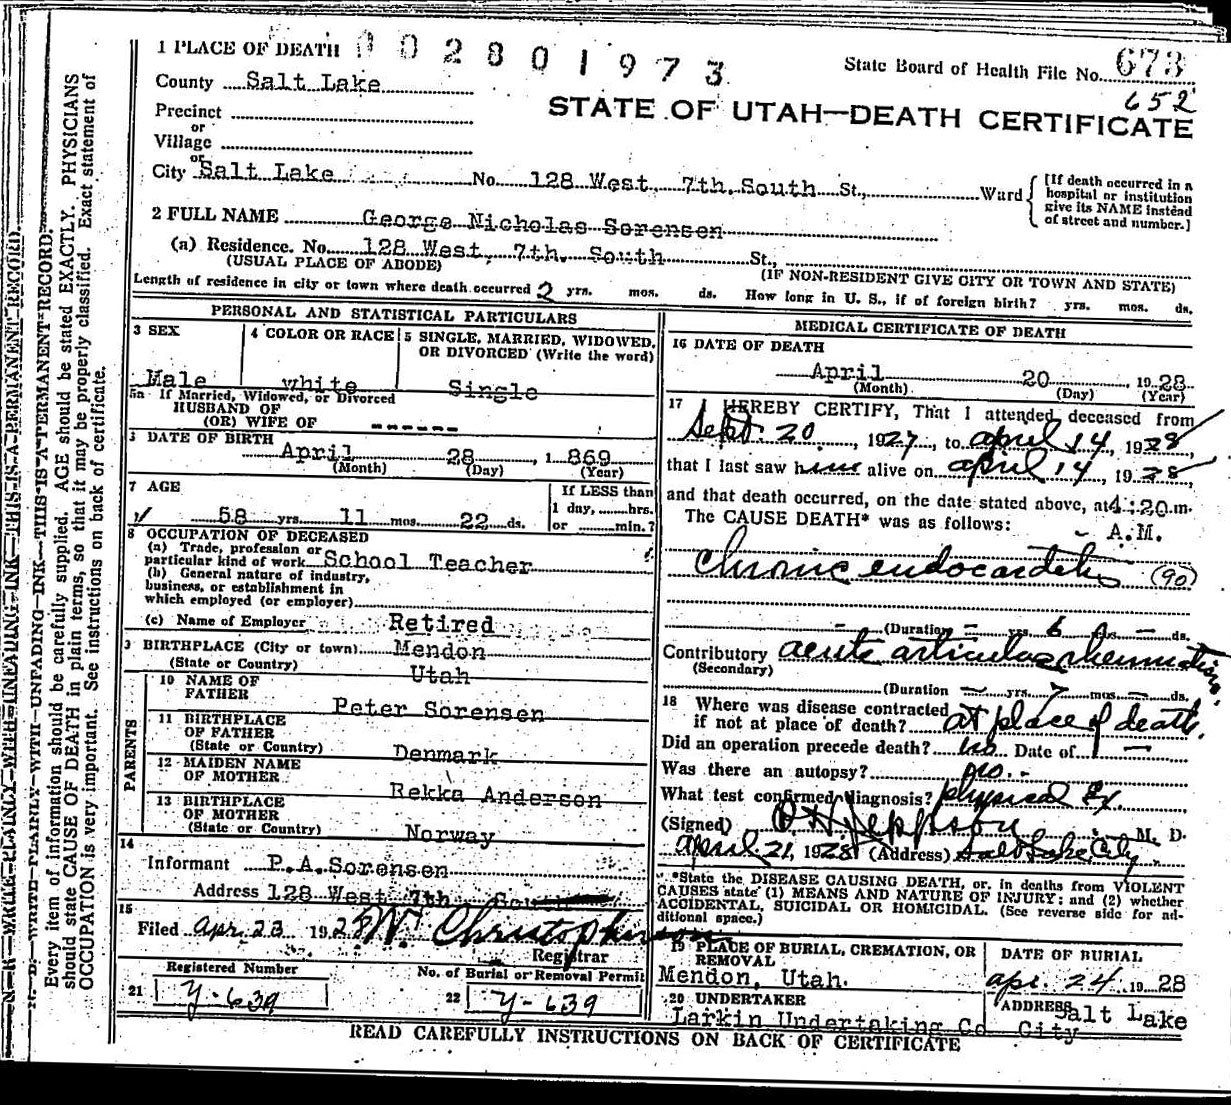 1 PLACE OF DEATH 002801973
State Board of Health File No. 673
652
County Salt Lake
STATE OF UTAH—DEATH CERTIFICATE
Precinct
or
Village
or
City Salt Lake No. 128 West, 7th. South St., Ward
[If death occurred in a
hospital or institution
give its NAME instead
of street and number.]
2 FULL NAME George Nicholas Sorensen
(a) Residence. No. 128 West, 7th. South St.,
(USUAL PLACE OF ABODE) (IF NON-RESIDENT GIVE CITY OR TOWN AND STATE)
Length of residence in city or town where death occurred 2 yrs. mos. ds. How long in U. S., if of foreign birth? yrs. mos. ds.
PERSONAL AND STATISTICAL PARTICULARS
3 SEX
Male
4 COLOR OR RACE
white
5 SINGLE, MARRIED, WIDOWED,
OR DIVORCED (Write the word)
Single
5a If Married, Widowed, or Divorced
HUSBAND OF
(OR) WIFE OF ------
DATE OF BIRTH
April 28 1869
(Month) (Day) (Year)
7 AGE
58 yrs. 11 mos. 22 ds.
If LESS than
1 day, hrs.
or min.?
8 OCCUPATION OF DECEASED
(a) Trade, profession or
particular kind of work School Teacher
(b) General nature of industry,
business, or establishment in
which employed (or employer)
(c) Name of Employer Retired
9 BIRTHPLACE (City or town) Mendon
(State or Country) Utah
PARENTS
10 NAME OF
FATHER
Peter Sorensen
11 BIRTHPLACE
OF FATHER
(State or Country) Denmark
12 MAIDEN NAME
OF MOTHER
Rekka Anderson
13 BIRTHPLACE
OF MOTHER
(State or Country) Norway
14
Informant P.A.Sorensen
Address 128 West 7th South
15
Filed Apr. 23 1928 W. Christopherson
Registrar
Registered Number
21 Y-639
No. of Burial or Removal Permit
22 Y-639
MEDICAL CERTIFICATE OF DEATH
16 DATE OF DEATH
April 20, 1928
(Month) (Day) (Year)
17 I HEREBY CERTIFY, That I attended deceased from
Sept. 20, 1927, to april 14, 1928
that I last saw him alive on april 14, 1928,
and that death occurred, on the date stated above, at 4:20 m.
The CAUSE DEATH* was as follows: A.M.
Chronic endocarditis (90)
(Duration — yrs. 6 mos. — ds.
Contributory acute articular rheumatism
(Secondary)
(Duration — yrs. 7 mos. — ds.
18 Where was disease contracted
if not at place of death? at place of death.
Did an operation precede death? no Date of —
Was there an autopsy? no.-
What test confirmed diagnosis? physical Ex.
(Signed) O H Jeppson M. D.
April 21, 1928 (Address) Salt Lake City
*State the DISEASE CAUSING DEATH, or, in deaths from VIOLENT
CAUSES state (1) MEANS AND NATURE OF INJURY; and (2) whether
ACCIDENTAL, SUICIDAL OR HOMICIDAL. (See reverse side for ad-
ditional space.)
19 PLACE OF BURIAL, CREMATION, OR
REMOVAL
Mendon, Utah.
DATE OF BURIAL
apr. 24, 1928
20 UNDERTAKER
Larkin Undertaking Co
ADDRESS Salt Lake
City
READ CAREFULLY INSTRUCTIONS ON BACK OF CERTIFICATE
N. B.—WRITE PLAINLY—WITH UNFADING INK—THIS IS A PERMANENT RECORD.
Every item of information should be carefully supplied. AGE should be stated EXACTLY. PHYSICIANS
should state CAUSE OF DEATH in plain terms, so that it may be properly classified. Exact statement of
OCCUPATION is very important. See instructions on back of certificate.